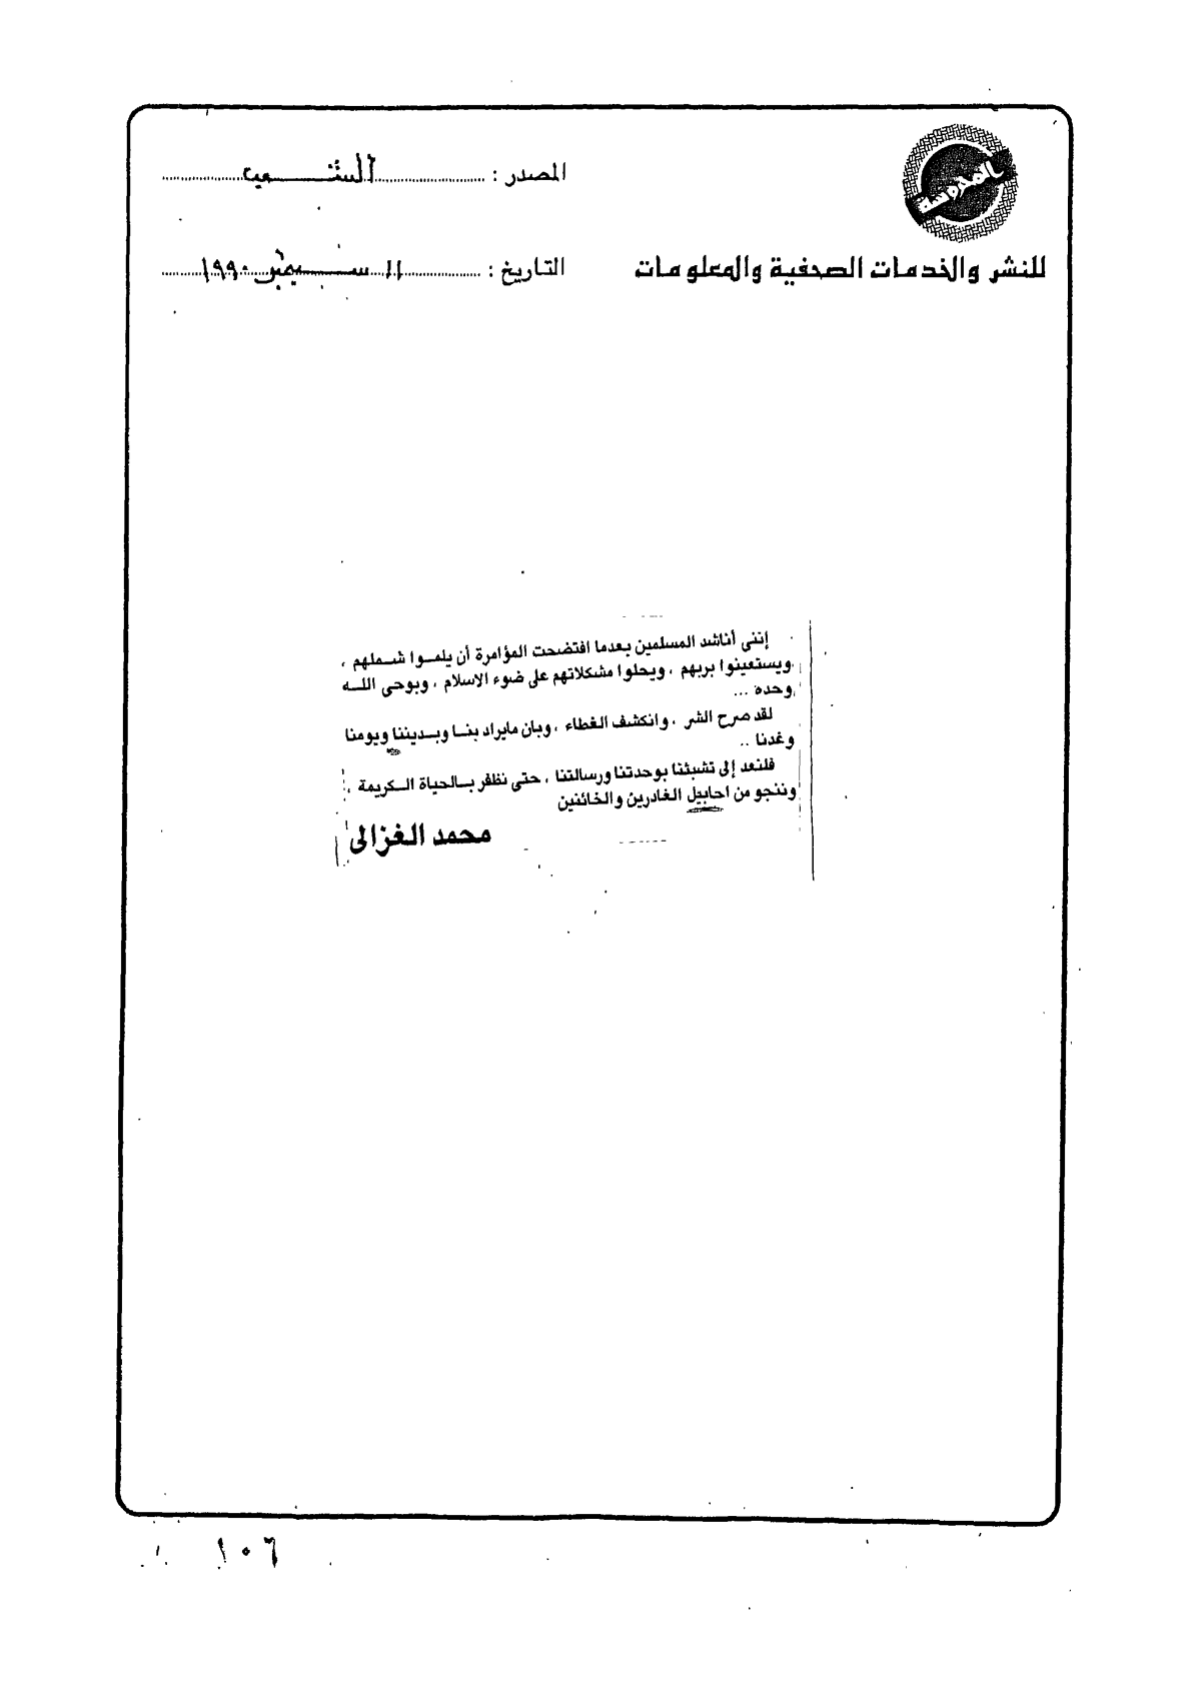 المحروسة
المصدر : الشعب
للنشر والخدمات الصحفية والمعلومات
التاريخ : ١١ سبتمبر ١٩٩٠
إننى أناشد المسلمين بعدما افتضحت المؤامرة أن يلموا شملهم ،
ويستعينوا بربهم ، ويحلوا مشكلاتهم على ضوء الاسلام ، وبوحى الله
وحده ...
لقد صرح الشر ، وانكشف الغطاء ، وبان مايراد بنا وبديننا ويومنا
وغدنا ..
فلنعد إلى تشبثنا بوحدتنا ورسالتنا ، حتى نظفر بالحياة الكريمة ،
وننجو من احابيل الغادرين والخائنين
محمد الغزالى
١٠٦